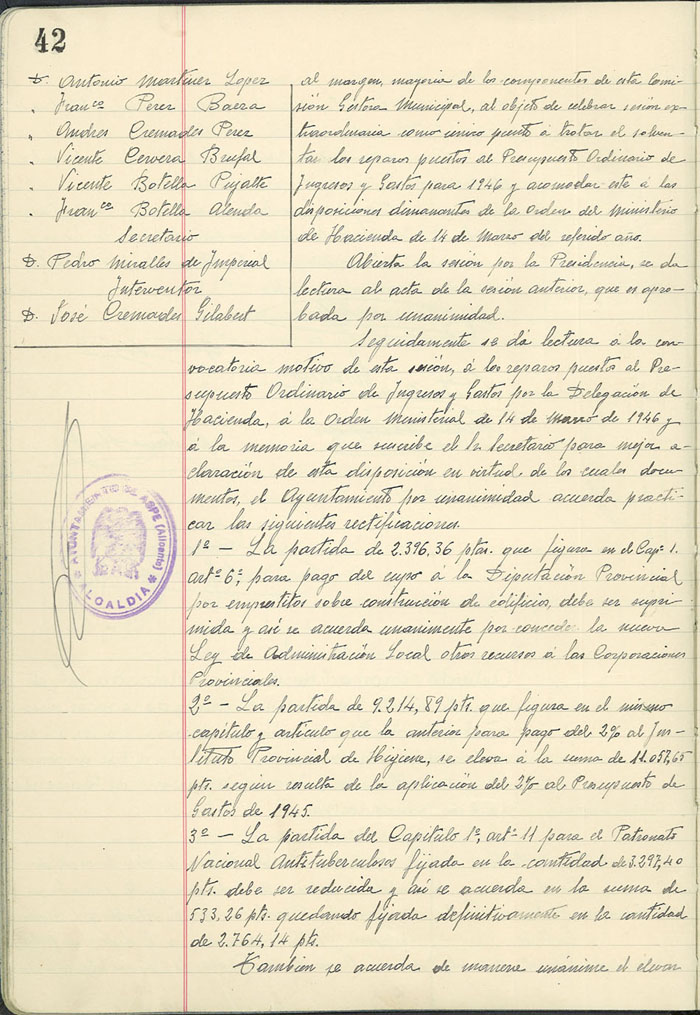 42
D. Antonio Martinez Lopez
" Franco Perez Baeza
" Andres Cremades Perez
" Vicente Cervera Brufal
" Vicente Botella Pujalte
" Franco Botella Alenda
Secretario
D. Pedro Miralles de Imperial
Interventor
D. José Cremades Gilabert
al margen, mayoria de los componentes de esta Comi-
sión Gestora Municipal, al objeto de celebrar sesión ex-
traordinaria como único punto á tratar el solven-
tar los reparos puestos al Presupuesto Ordinario de
Ingresos y Gastos para 1946 y acomodar este á las
disposiciones dimanantes de la Orden del Ministerio
de Hacienda de 14 de Marzo del referido año.
Abierta la sesión por la Presidencia, se da
lectura al acta de la sesión anterior, que es apro-
bada por unanimidad.
Seguidamente se dá lectura á la con-
vocatoria motivo de esta sesión, á los reparos puestos al Pre-
supuesto Ordinario de Ingresos y Gastos por la Delegación de
Hacienda, á la Orden Ministerial de 14 de Marzo de 1946 y
á la memoria que suscribe el Sr. Secretario para mejor a-
claración de esta disposición en virtud de los cuales docu-
mentos, el Ayuntamiento por unanimidad acuerda practi-
car las siguientes rectificaciones.
1º - La partida de 2.396,36 ptas. que figura en el Capº 1.
artº 6º, para pago del cupo á la Diputación Provincial
por emprestitos sobre construcción de edificios, debe ser supri-
mida y así se acuerda unanimente por conceder la nueva
Ley de Administración Local otros recursos á las Corporaciones
Provinciales.
2º - La partida de 9.214,89 pts. que figura en el mismo
capítulo y artículo que la anterior para pago del 2% al Ins-
tituto Provincial de Higiene, se eleva á la suma de 11.057,65
pts. según resulta de la aplicación del 2% al Presupuesto de
Gastos de 1945.
3º - La partida del Capítulo 1º, artº 11 para el Patronato
Nacional Antituberculosos fijada en la cantidad de 3.297,40
pts. debe ser reducida y así se acuerda en la suma de
533,26 pts. quedando fijada definitivamente en la cantidad
de 2.764,14 pts.
Tambien se acuerda de manera unánime el elevar
AYUNTAMIENTO DE ASPE (Alicante)
* ALCALDIA *